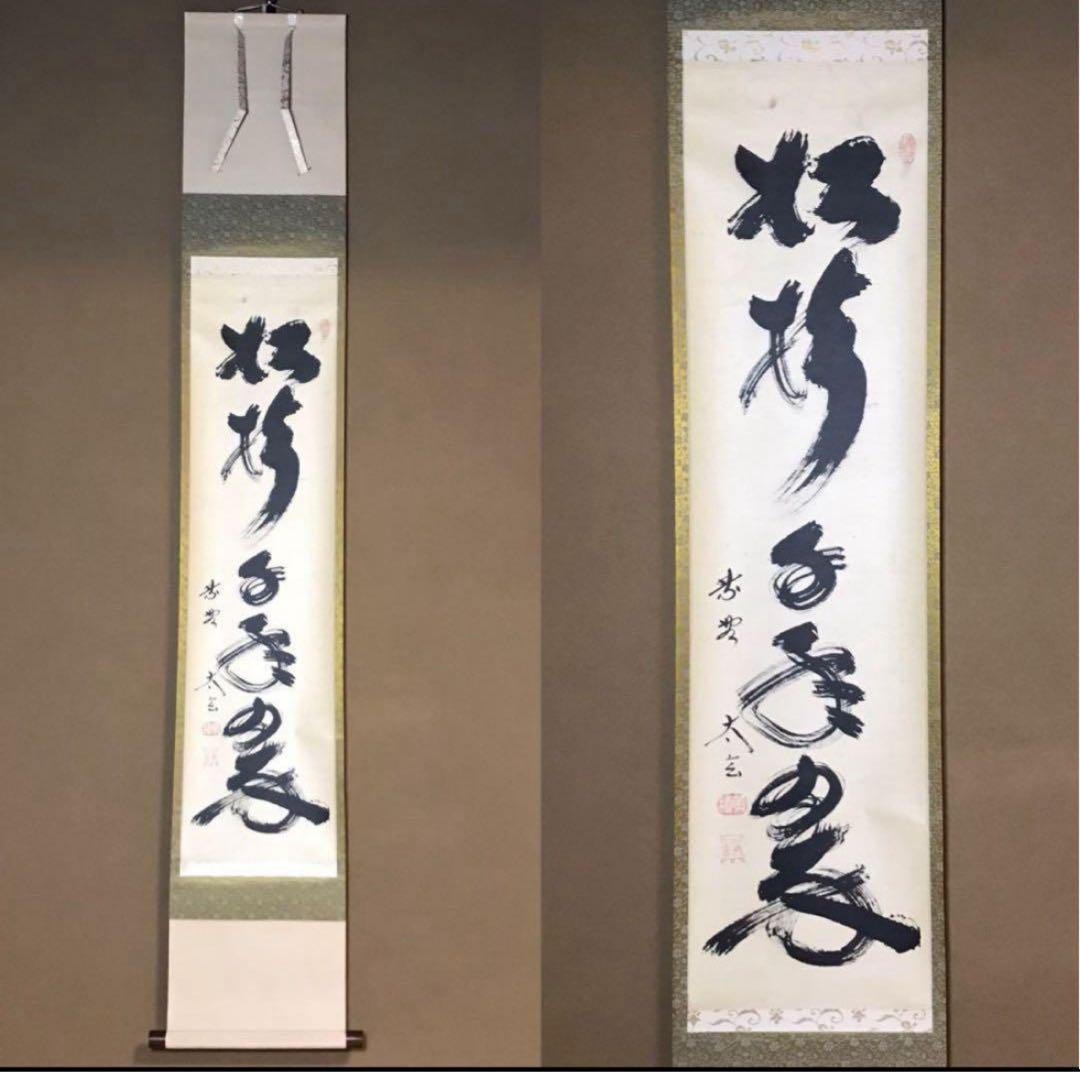 松樹千年翠
紫野 太玄
松樹千年翠
紫野 太玄